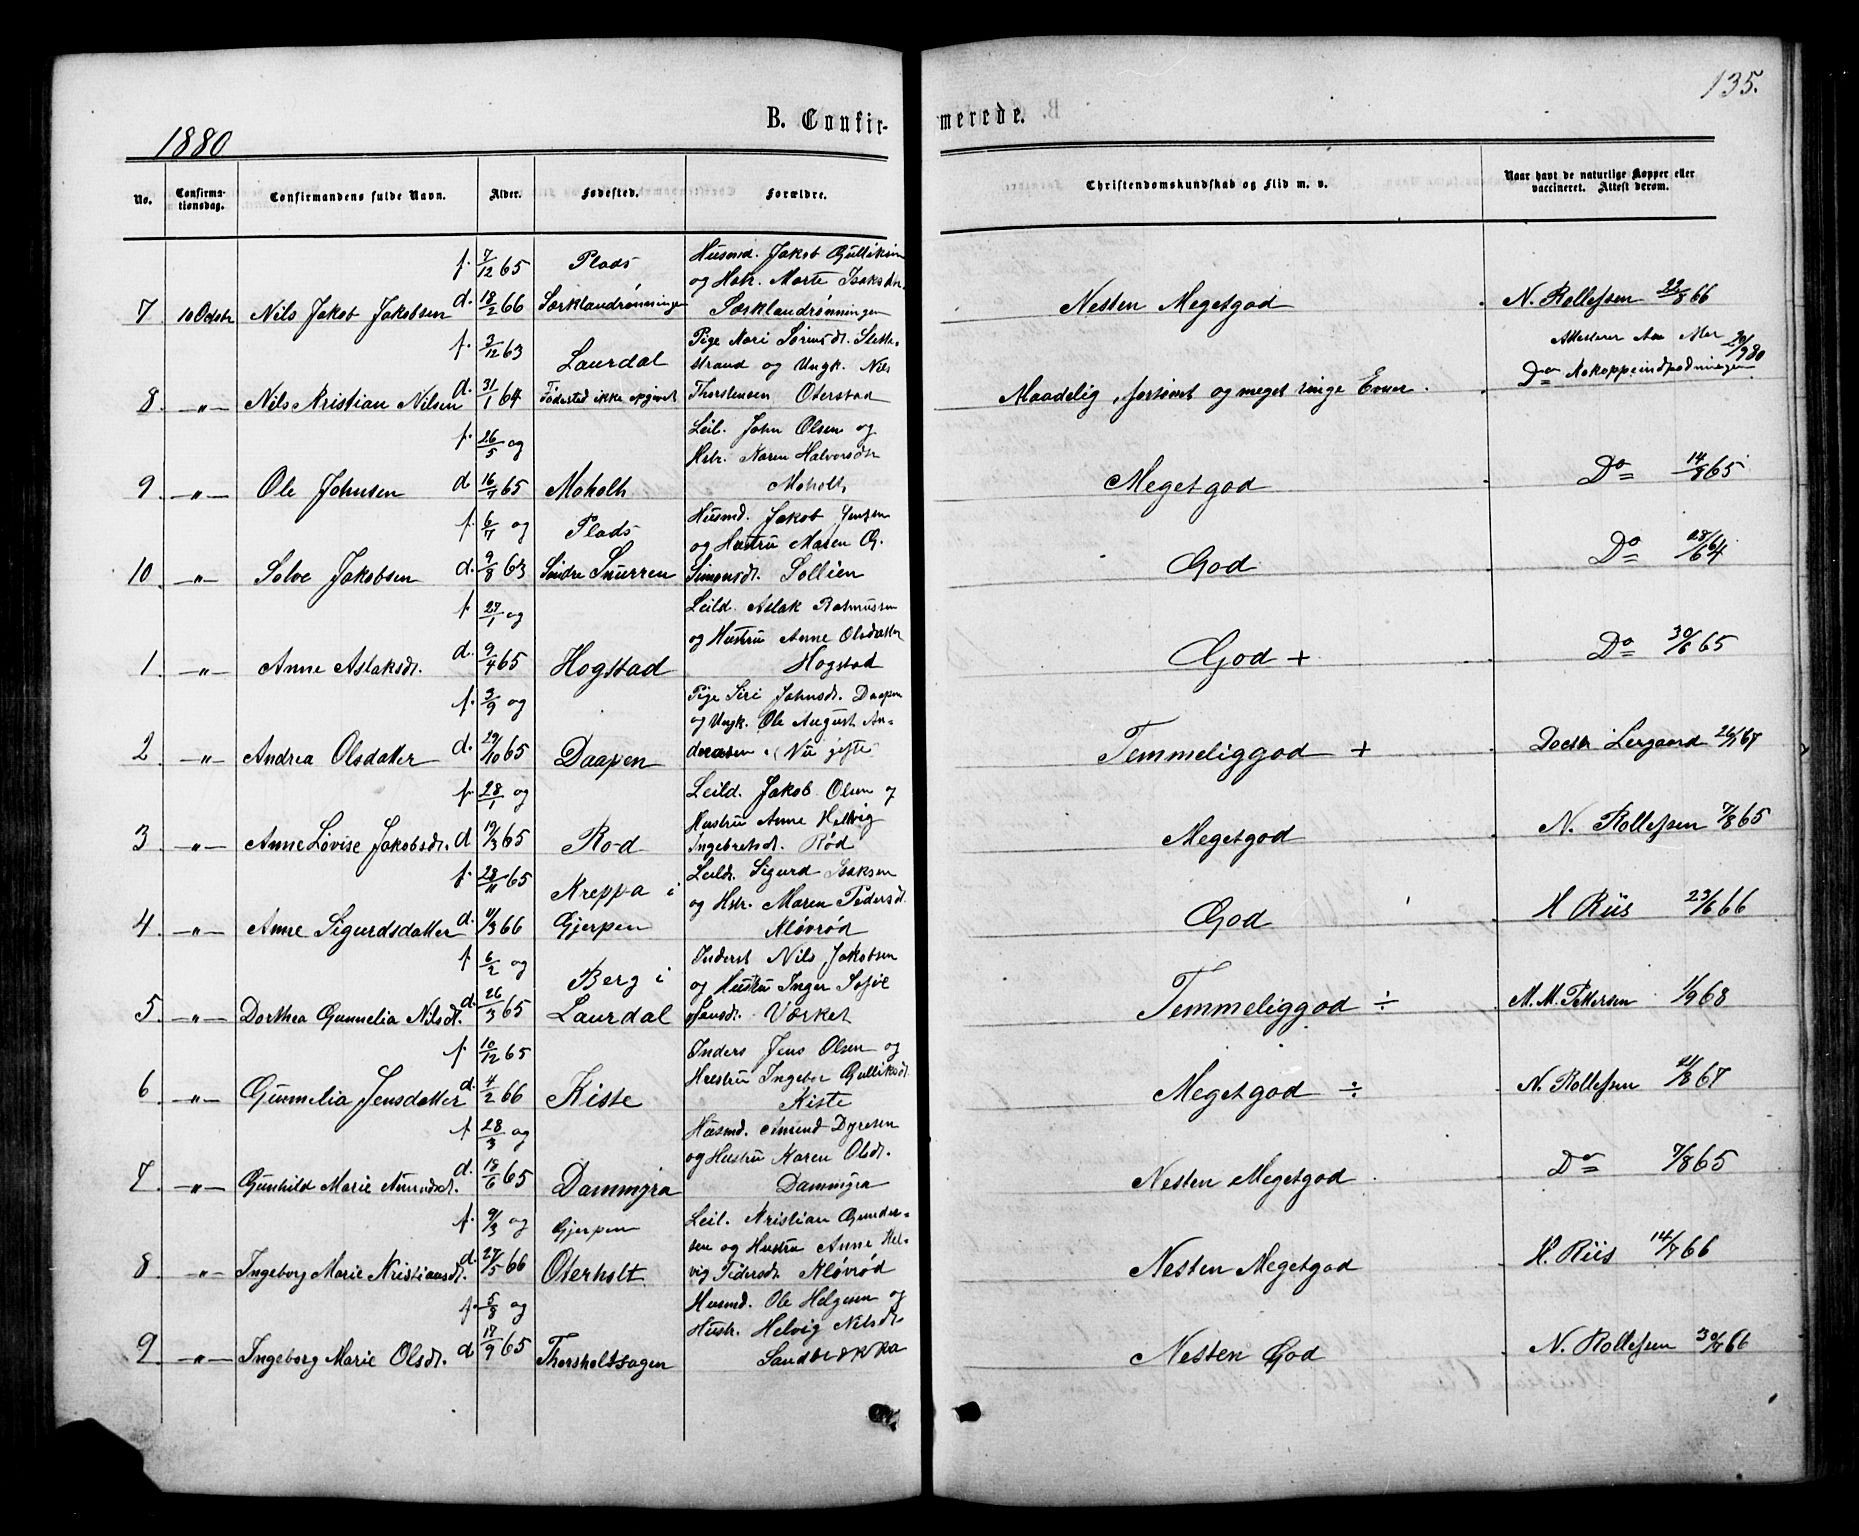 135.
1880
B. Confirmerede.
No. Confirmationsdag. Confirmandens fulde Navn. Alder. Fødested. Forældre. Christendomskundskab og Flid m. v. Naar havt de naturlige Kopper eller vaccineret. Attest derom.
f. 7/12 65 Plads Husmd. Jakob Gulliksen
og Hstr. Marte Isaksdtr.
7 10 Octbr Nils Jakob Jakobsen d. 18/2 66 Sørklandrønningen Sørklandrønningen Nesten Megetgod N. Rollefsen 22/8 66
f. 3/12 63 Laurdal Pige Kari Sørensdt. Slette-
strand og Ungk. Nils
8 —„— Nils Kristian Nilsen d. 31/1 64 Fødested ikke opgivet Thorstensen Oterstad Maadelig, forsømt og meget ringe Evner. Do Kokoppeindpodningen
f. 26/5 og Leil. John Olsen og
Hstr. Karen Halvorsdtr
9 —„— Ole Johnsen d 16/7 65 Moholt Moholt Megetgod Do 14/8 65
f. 6/7 og Plads Husmd. Jakob Jensen
og Hustru Maren G.
10. —„— Solve Jakobsen d. 9/8 63 Søndre Snurren Simonsdt. Sollien God Do 28/6 64
f 27/1 og Leild. Aslak Rasmussen
og Hustru Anne Olsdatter
1 —„— Anne Aslaksdt. d. 9/4 65 Hogstad Hogstad God + Do 30/6 65
f. 3/9 og Pige Siri Johnsdt. Daapen
og Ungk. Ole August An-
2 —„— Andrea Olsdatter d. 29/10 65 Daapen dersen. (Nu gifte Temmeliggod + Doctr Lergaard 26/1 67
f. 28/1 og Leild. Jakob Olsen og
Hustru Anne Helvig
3 —„— Anne Lovise Jakobsdt. d 19/3 65 Rød Ingebretsdt. Rød Megetgod N. Rollefsen 7/8 65
f. 28/11 65 Kreppa i Leild. Sigurd Isaksen
og Hstr. Maren Pedersdt.
4 —„— Anne Sigurdsdatter d. 11/3 66 Gjerpen Kløvrød God H Riis 23/6 66
f 6/2 og Berg i Inderst Nils Jakobsen
og Hustru Inger Sofie
5 —„— Dorthea Gunnelia Nilsdt. d. 26/3 65 Laurdal Hansdt. Værket Temmeliggod ÷ M. M. Pettersen 1/9 68
f. 10/12 65 Inders Jens Olsen og
Hustru Ingebor Gulliksdt.
6 —„— Gunnelia Jensdatter d. 4/2 66 Kiste Kiste Megetgod ÷ N. Rollefsen 21/8 67
f 28/3 og Husmd. Amund Dyresen
og Hustru Karen Olsdt.
7. —„— Gunhild Marie Amundsdt. d. 18/6 65 Dammyra Dammyra Nesten Megetgod Do 7/8 65
f. 9/3 og Gjerpen Leil. Kristian Gunder-
sen og Hustru Anne Hel-
8 —„— Ingeborg Marie Kristiansdt. d 27/5 66 Oterholt vig Pedersdt. Kløvrød Nesten Megetgod H. Riis 14/7 66
f. 5/8 og Husmd. Ole Helgesen og
Hustr. Helvig Nilsdt.
9 —„— Ingeborg Marie Olsdt. d 17/9 65 Thorsholtsagen Sandbrækka Nesten God N. Rollefsen 30/7 66